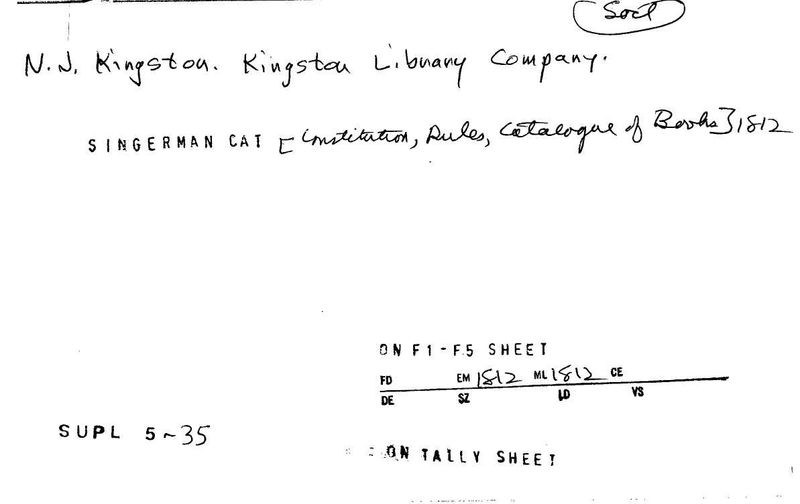 Socl
N.J. Kingston. Kingston Library Company.
SINGERMAN CAT [Constitution, Rules, Catalogue of Books] 1812
ON F1-F5 SHEET
FD EM 1812 ML 1812 CE
DE SZ LD VS
SUPL 5-35
ON TALLY SHEET